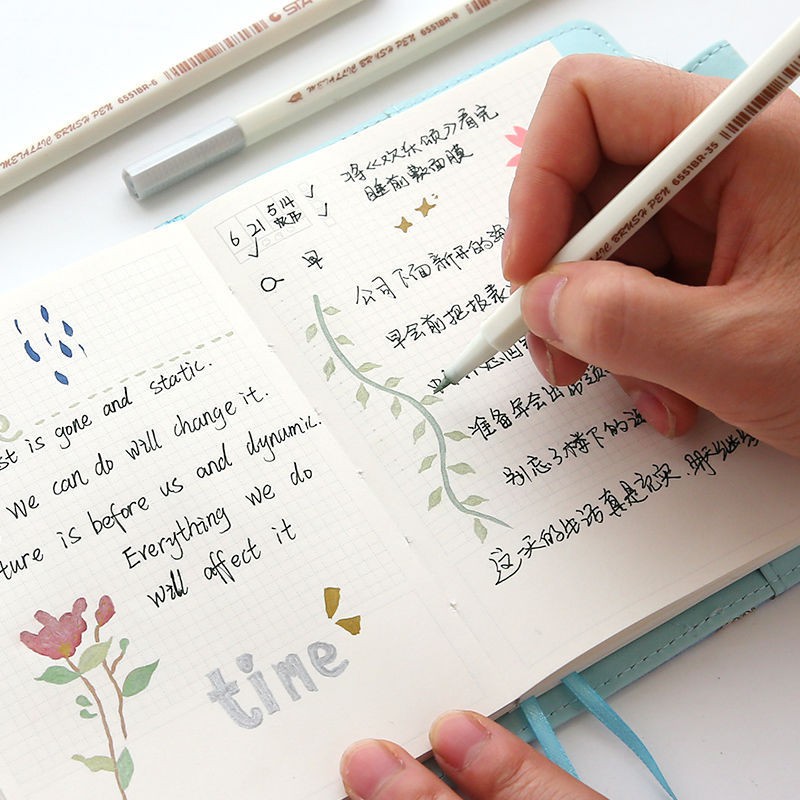 METALLIC BRUSH PEN 6551BR-6 STA
METALLIC BRUSH PEN 6551BR-8
METALLIC BRUSH PEN 6551BR-35
st is gone and static.
We can do will change it.
ture is before us and dynamic.
Everything we do
will affect it
time
6 21 514
早
将《欢乐颂》看完
睡前敷面膜
公司下面新开的
早会前把报表
准备年会出节
别忘了楼下的
这一天的生活真是充实,明天继续